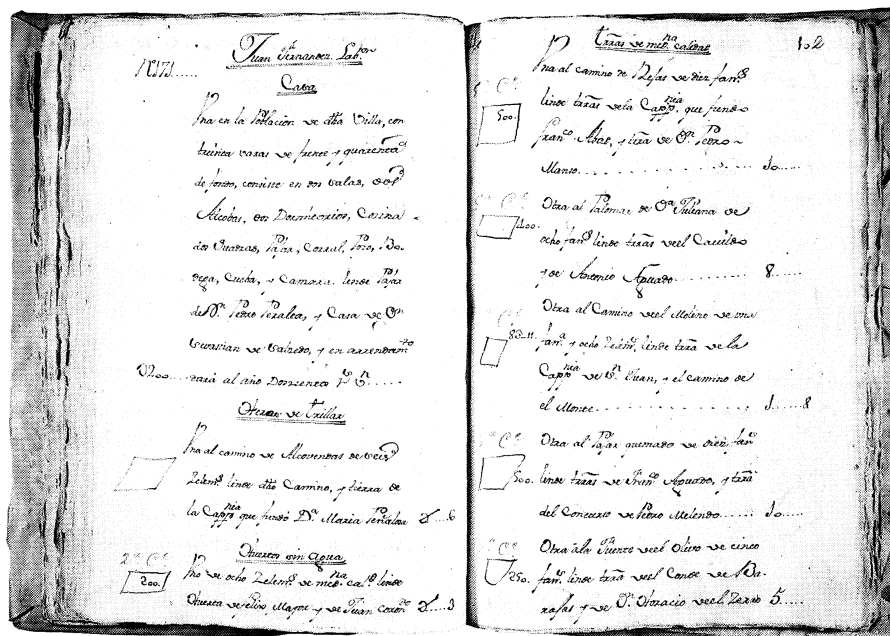 Nº 171......
Juan Fernandez Labor
Casa
Una en la Poblacion de dha Villa, con
treinta varas de frente y quarenta
de fondo, consiste en dos salas, dos
Alcobas, dos Dormitorios, Cocina
dos Quadras, Pajar, Corral, Pozo, Bo-
dega, Cueba, y Camara. linde Pajar
de Dn. Pedro Peralta, y Casa de Dn
Sevastian de Salzedo, y en arrendamto
U200..... dará al año Doscientos Rs Vn.....
Heras de Trillar
Una al camino de Alcovendas de seis
Zelems. linde dho Camino, y tierra de
la Cappnia que fundó Da. Maria Peñalosa 6
Huertos sin agua
2ª Cª Uno de ocho Zelems. de medna cald linde
200.
Huerta de Felix, Major y de Juan
tras de medna calidad 102
Una al camino de Rejas de diez fans
500. linde trras de la Cappnia que fundo
Franco. Abas, y trra de Dn. Pedro
Manso......... 10.....
Otra al Palomar de Da Juliana de
400. ocho fans linde trras del Cavildo
y de Antonio Aguado......... 8......
Otra al Camino del Molino de una
83-11. fana. y ocho Zelems. linde trra de la
Cappnia de Sn. Juan, y el camino de
el Monte............ 1......8
Otra al Pajar quemado de diez fans
500. linde trras de Franco Aguado, y trra
del Concurso de Pedro Melendo...... 10.....
Otra ala Fuente del Olivo de cinco
250. fans. linde trra del Conde de Ba-
rajas y de Dn. Horacio del Zerro 5.....